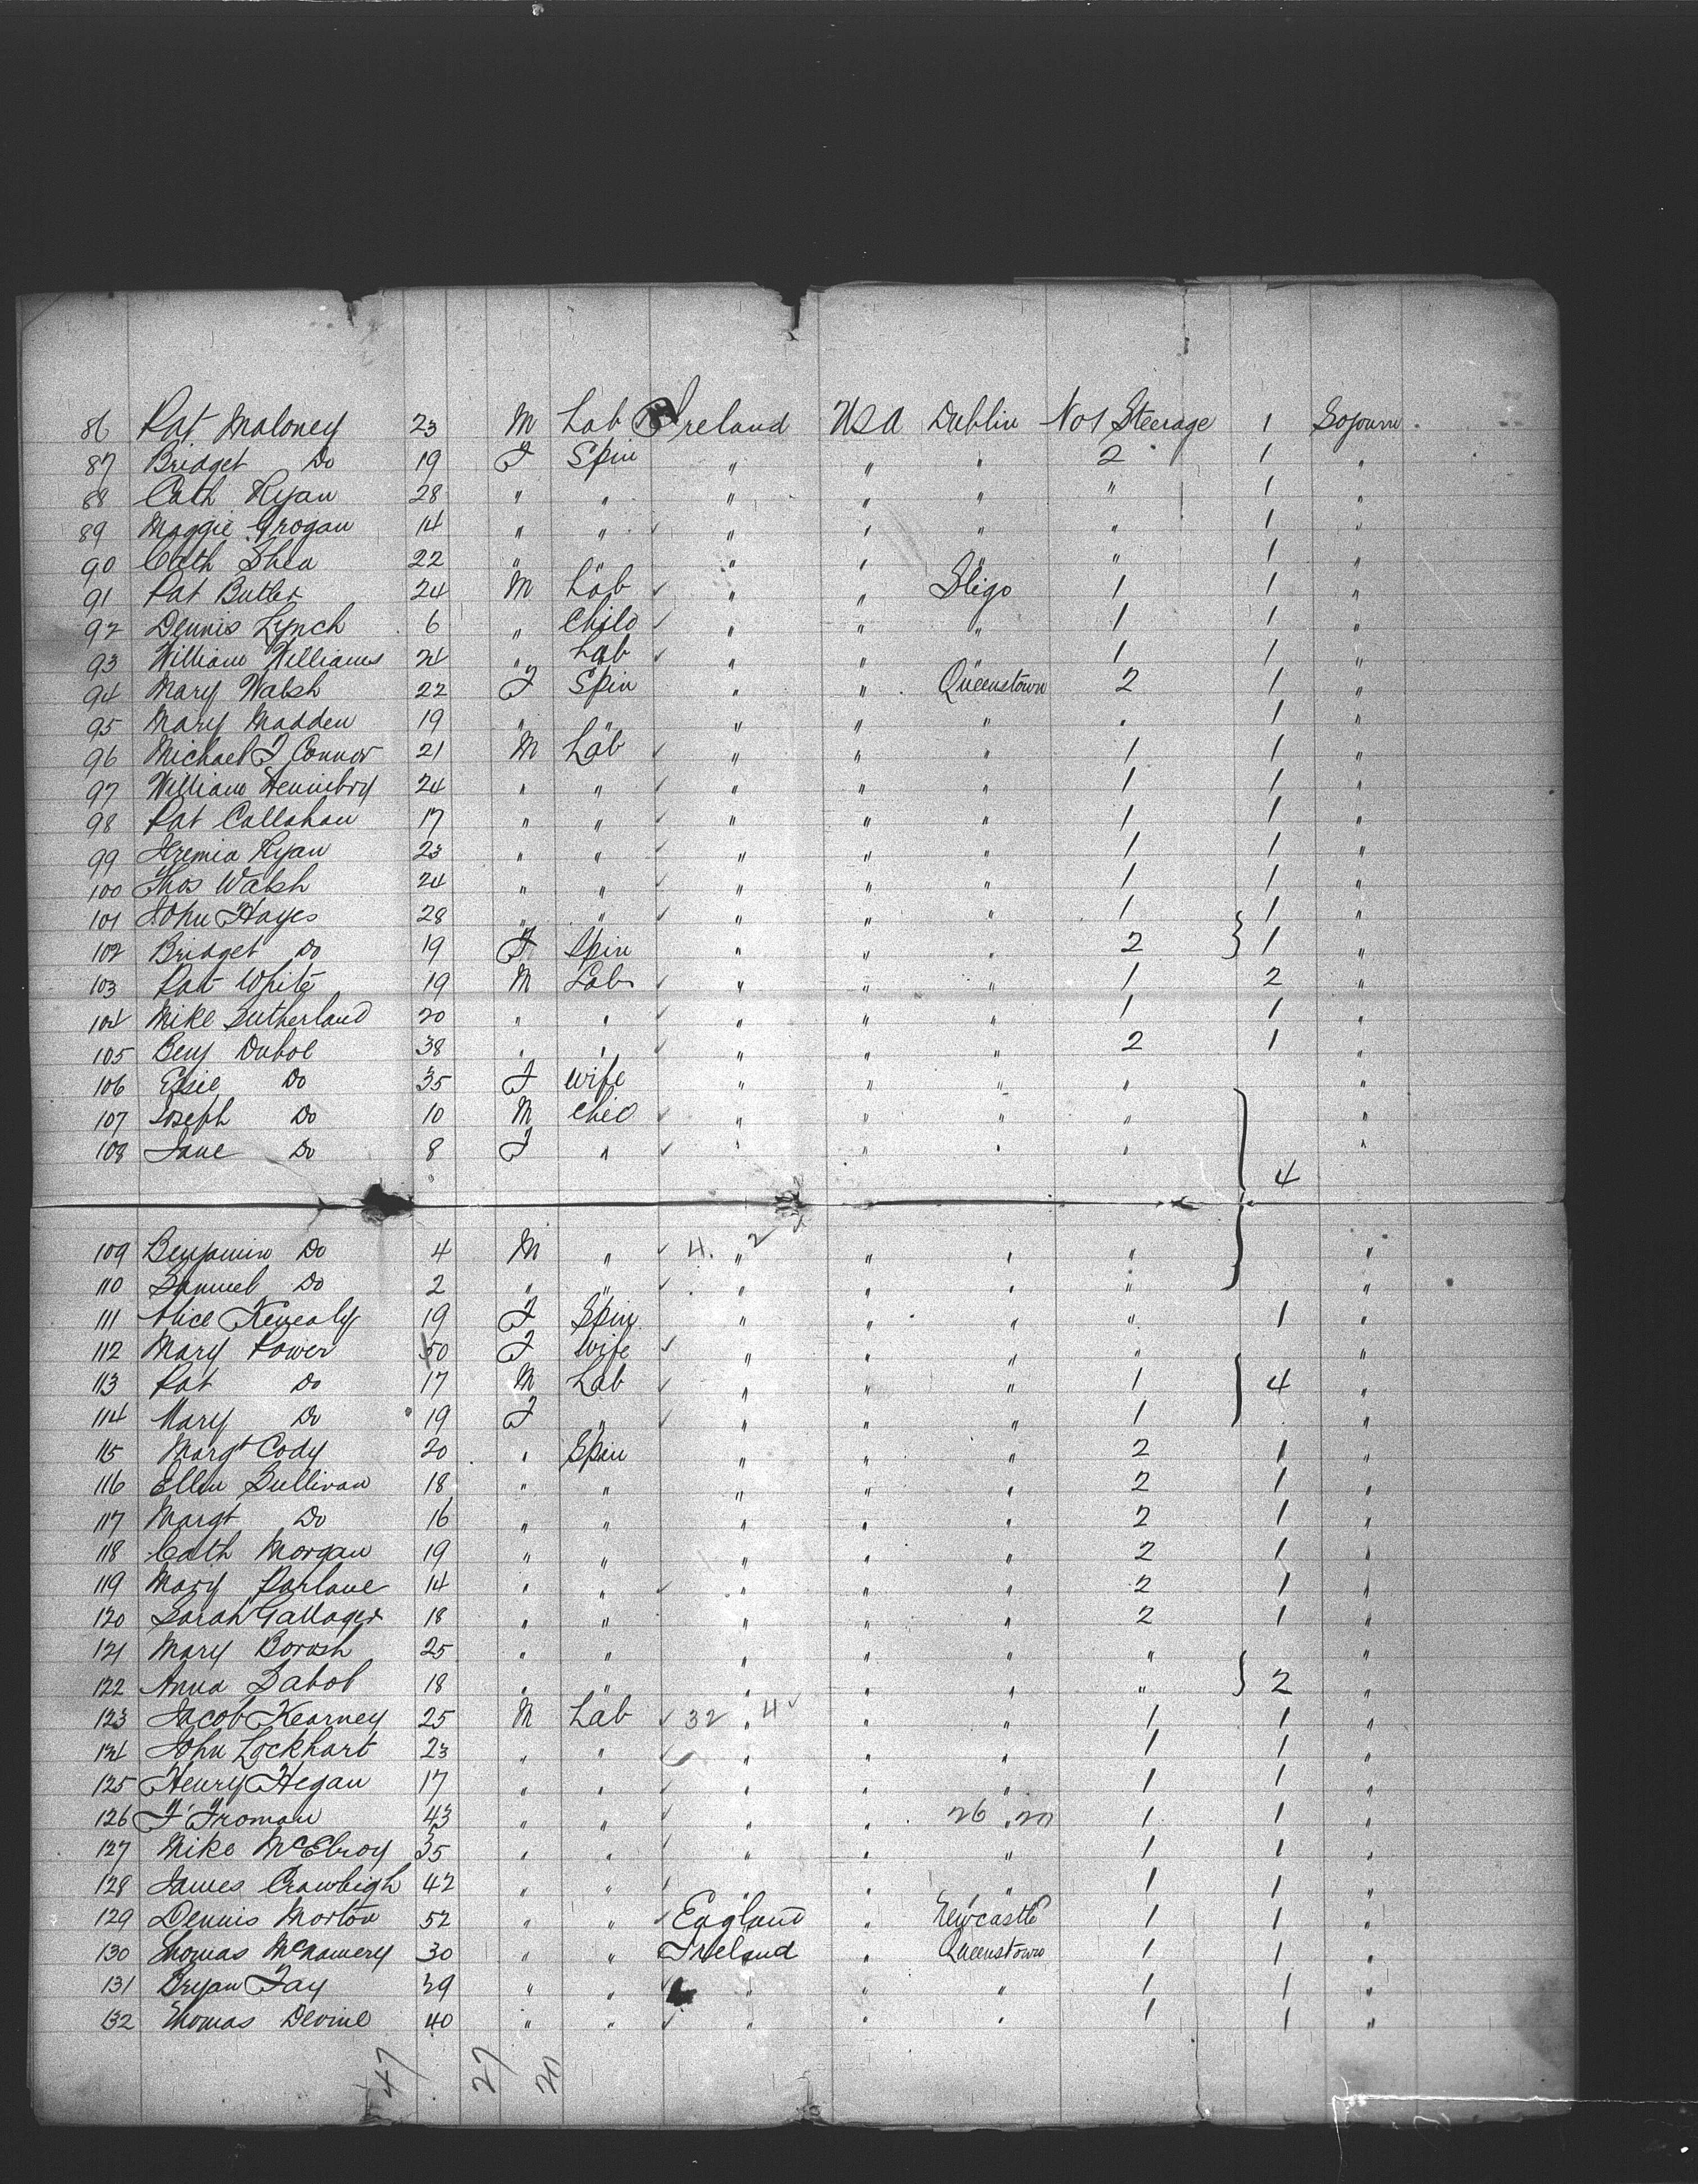 86 Pat Maloney 23 M Lab Ireland USA Dublin No 1 Steerage 1 Sojourn
87 Bridget Do 19 F Spin " " " 2 1 "
88 Cath Ryan 28 " " " " " " 1 "
89 Maggie Grogan 14 " " " " " " 1 "
90 Cath Shea 22 " " " " " " 1 "
91 Pat Butler 24 M Lab " " Sligo 1 1 "
92 Dennis Lynch 6 " Child " " " 1 1 "
93 William Williams 24 " Lab " " " 1 1 "
94 Mary Walsh 22 F Spin " " Queenstown 2 1 "
95 Mary Madden 19 " " " " " " 1 "
96 Michael J Connor 21 M Lab " " " 1 1 "
97 William 24 " " " " " 1 1 "
98 Pat Callahan 17 " " " " " 1 1 "
99 Jeremia Ryan 23 " " " " " 1 1 "
100 Thos Walsh 24 " " " " " 1 1 "
101 John Hayes 28 " " " " " 1 1 "
102 Bridget Do 19 F Spin " " " 2 1 "
103 Pat White 19 M Lab " " " 1 2 "
104 Mike Sutherland 20 " " " " " 1 1 "
105 Benj 38 " " " " " 2 1 "
106 Essie Do 35 F Wife " " " " "
107 Joseph Do 10 M " " " " "
108 Jane Do 8 F " " " " " "
4
109 Benjamin Do 4 M " 4. " 2 " " " "
110 Samuel Do 2 " " " " " " "
111 Alice Kenealy 19 F Spin " " " " 1 "
112 Mary Power 50 F Wife " " " " "
113 Pat Do 17 M Lab " " " 1 4 "
114 Mary Do 19 F " " " " 1 "
115 Margt Cody 20 " Spin " " " 2 1 "
116 Ellen Sullivan 18 " " " " " 2 1 "
117 Margt Do 16 " " " " " 2 1 "
118 Cath Morgan 19 " " " " " 2 1 "
119 Mary Parlane 14 " " " " " 2 1 "
120 Sarah Gallager 18 " " " " " 2 1 "
121 Mary 25 " " " " " " "
122 Anna Sabol 18 " " " " " " 2 "
123 Jacob Kearney 25 M Lab 32 " 4 " " 1 1 "
124 John Lockhart 23 " " " " " 1 1 "
125 Henry Hegan 17 " " " " " 1 1 "
126 F Froman 43 " " " " 26 " 20 1 1 "
127 Mike McElroy 35 " " " " " 1 1 "
128 James Crawbigh 42 " " " " " 1 1 "
129 Dennis Morton 52 " " England " Newcastle 1 1 "
130 Thomas McNamery 30 " " Ireland " Queenstown 1 1 "
131 Bryan Fay 39 " " " " " 1 1 "
132 Thomas Devine 40 " " " " " 1 1 "
47 27 20